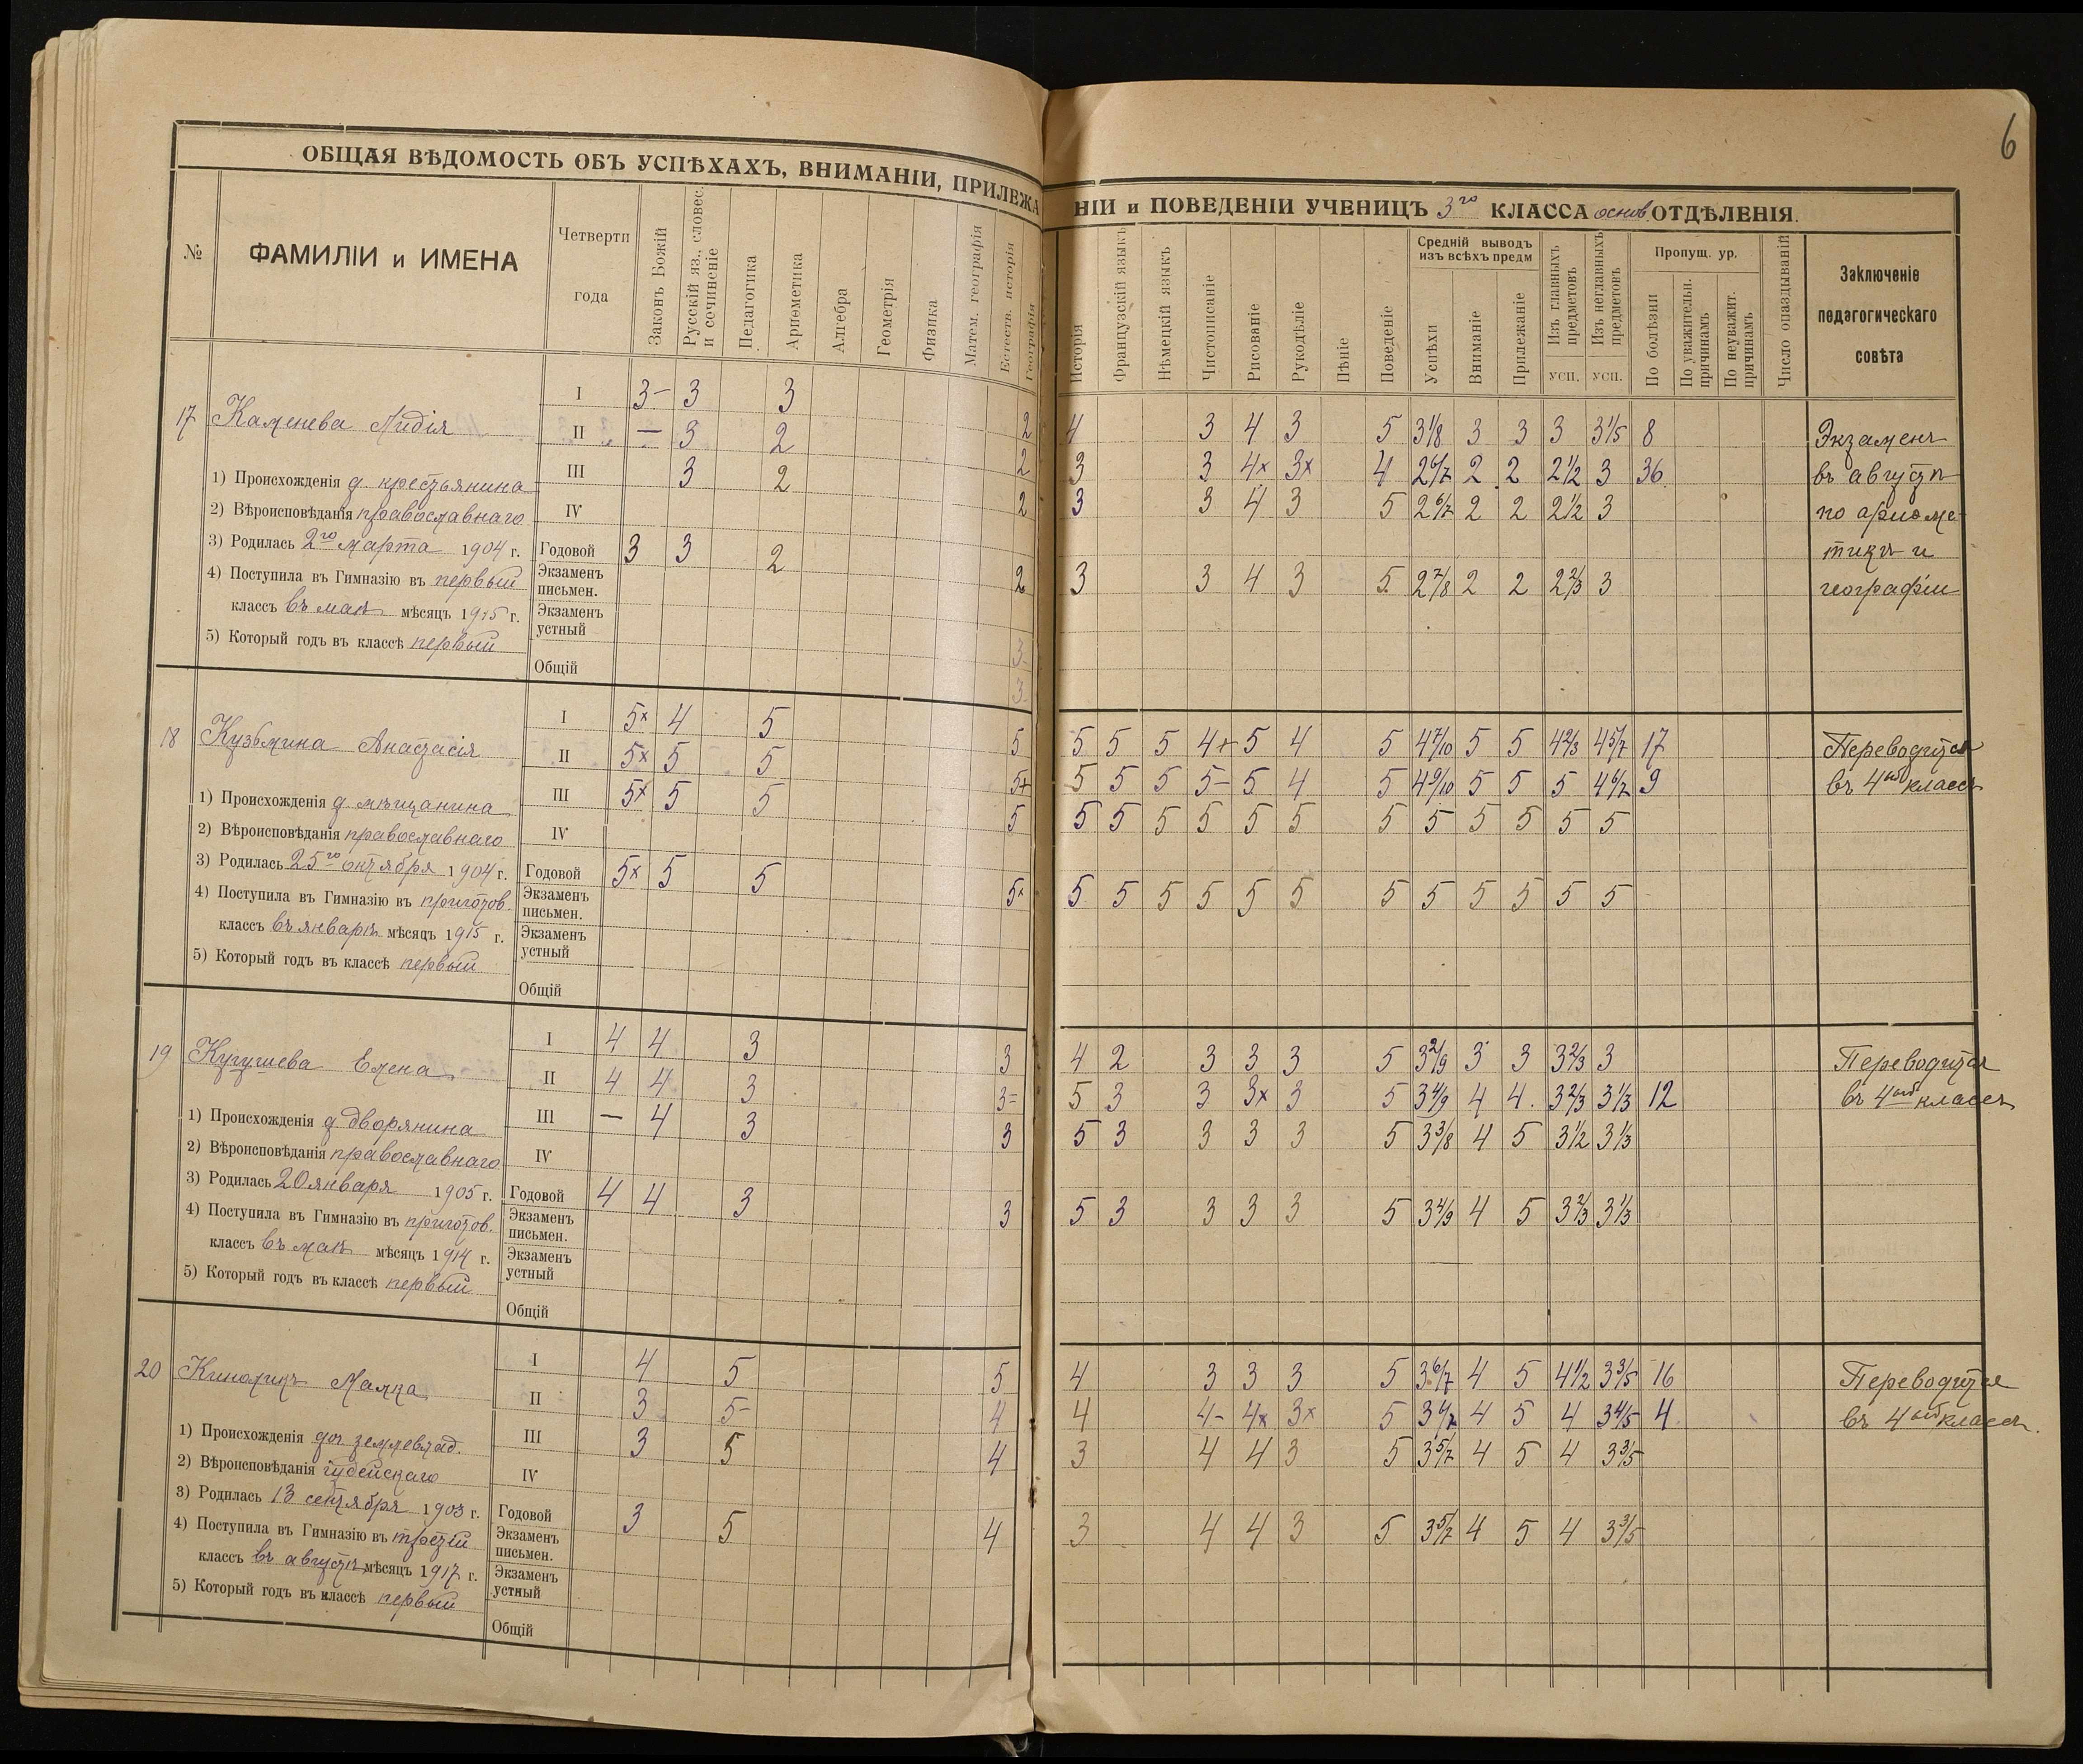 6
ОБЩАЯ ВѢДОМОСТЬ ОБЪ УСПѢХАХЪ, ВНИМАНІИ, ПРИЛЕЖА
НІИ и ПОВЕДЕНІИ УЧЕНИЦЪ 3го КЛАССА основ. ОТДѢЛЕНІЯ.
№
ФАМИЛІИ и ИМЕНА
Четверти
года
Законъ Божій
Русскій яз., словес.
и сочиненіе
Педагогика
Ариѳметика
Алгебра
Геометрія
Физика
Матем. географія
Естеств. исторія
Географія
Исторія
Французскій языкъ
Нѣмецкій языкъ
Чистописаніе
Рисованіе
Рукодѣліе
Пѣніе
Поведеніе
Средній выводъ
изъ всѣхъ предм
Успѣхи
Вниманіе
Прилежаніе
Изъ главныхъ
предметовъ
усп.
Изъ неглавныхъ
предметовъ
усп.
Пропущ. ур.
По болѣзни
По уважительн.
причинамъ
По неуважит.
причинамъ
Число опаздываній
Заключеніе
педагогическаго
совѣта
17 Каменева Лидія
1) Происхожденія д. крестьянина
2) Вѣроисповѣданія православнаго
3) Родилась 2го марта 1904 г.
4) Поступила въ Гимназію въ первый
классъ въ маѣ мѣсяцъ 1915 г.
5) Который годъ въ классѣ первый
I 3- 3 3 2 4 3 4 3 5 3 1/8 3 3 3 3 1/5 8
II — 3 2 2 3 3 4x 3x 4 2 6/7 2 2 2 1/2 3 36
III 3 2 2 3 3 4 3 5 2 6/7 2 2 2 1/2 3
IV
Годовой 3 3 2 2 3 3 4 3 5 2 7/8 2 2 2 2/3 3
Экзаменъ
письмен.
Экзаменъ
устный 3
Общій 3
Экзаменъ
въ августѣ
по ариѳме-
тикѣ и
географіи
18 Кузьмина Анастасія
1) Происхожденія д. мѣщанина
2) Вѣроисповѣданія православнаго
3) Родилась 25го октября 1904 г.
4) Поступила въ Гимназію въ приготов.
классъ въ январѣ мѣсяцъ 1915 г.
5) Который годъ въ классѣ первый
I 5x 4 5 5 5 5 5 4+ 5 4 5 4 7/10 5 5 4 2/3 4 5/7 17
II 5x 5 5 5+ 5 5 5 5- 5 4 5 4 9/10 5 5 5 4 6/7 9
III 5x 5 5 5 5 5 5 5 5 5 5 5 5 5 5 5
IV
Годовой 5x 5 5 5x 5 5 5 5 5 5 5 5 5 5 5 5
Экзаменъ
письмен.
Экзаменъ
устный
Общій
Переводится
въ 4ый классъ
19 Кугушева Елена
1) Происхожденія д. дворянина
2) Вѣроисповѣданія православнаго
3) Родилась 20 января 1905 г.
4) Поступила въ Гимназію въ приготов.
классъ въ маѣ мѣсяцъ 1914 г.
5) Который годъ въ классѣ первый
I 4 4 3 3 4 2 3 3 3 5 3 2/9 3 3 3 2/3 3
II 4 4 3 3= 5 3 3 3x 3 5 3 4/9 4 4 3 2/3 3 1/3 12
III — 4 3 3 5 3 3 3 3 5 3 3/8 4 5 3 1/2 3 1/3
IV
Годовой 4 4 3 3 5 3 3 3 3 5 3 4/9 4 5 3 2/3 3 1/3
Экзаменъ
письмен.
Экзаменъ
устный
Общій
Переводится
въ 4ый классъ
20
1) Происхожденія доч. землевлад.
2) Вѣроисповѣданія іудейскаго
3) Родилась 13 сентября 1903 г.
4) Поступила въ Гимназію въ третій
классъ въ августѣ мѣсяцъ 1917 г.
5) Который годъ въ классѣ первый
I 4 5 5 4 3 3 3 5 3 6/7 4 5 4 1/2 3 3/5 16
II 3 5- 4 4 4- 4x 3x 5 4 5 4 3 4/5 4
III 3 5 4 3 4 4 3 5 3 5/7 4 5 4 3 3/5
IV
Годовой 3 5 4 3 4 4 3 5 3 5/7 4 5 4 3 3/5
Экзаменъ
письмен.
Экзаменъ
устный
Общій
Переводится
въ 4ый классъ.